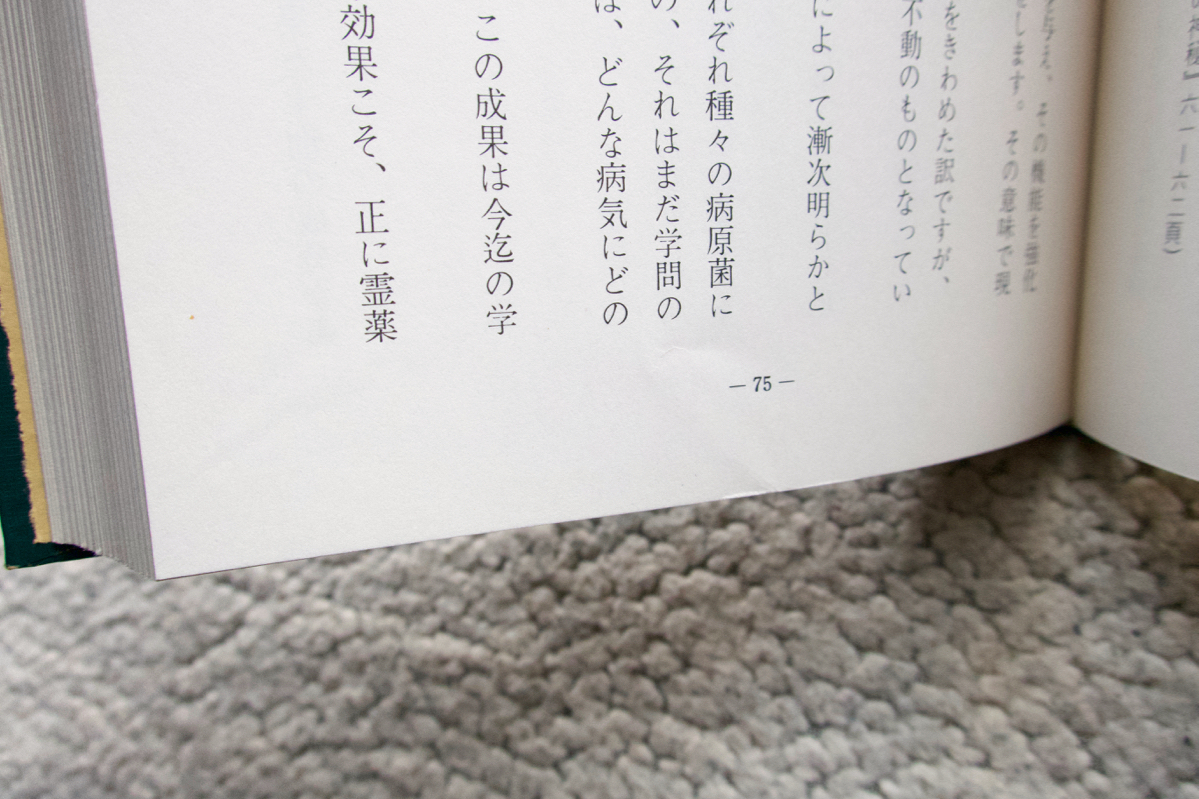 の神秘』六一―六二頁)
を与え、その機能を強化
します。その意味で現
をきわめた訳ですが、
不動のものとなってい
によって漸次明らかと
れぞれ種々の病原菌に
の、それはまだ学問の
は、どんな病気にどの
この成果は今迄の学
効果こそ、正に霊薬
― 75 ―